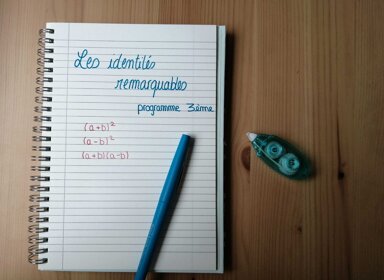 Les identités
remarquables
programme 3ème
(a+b)²
(a-b)²
(a+b)(a-b)